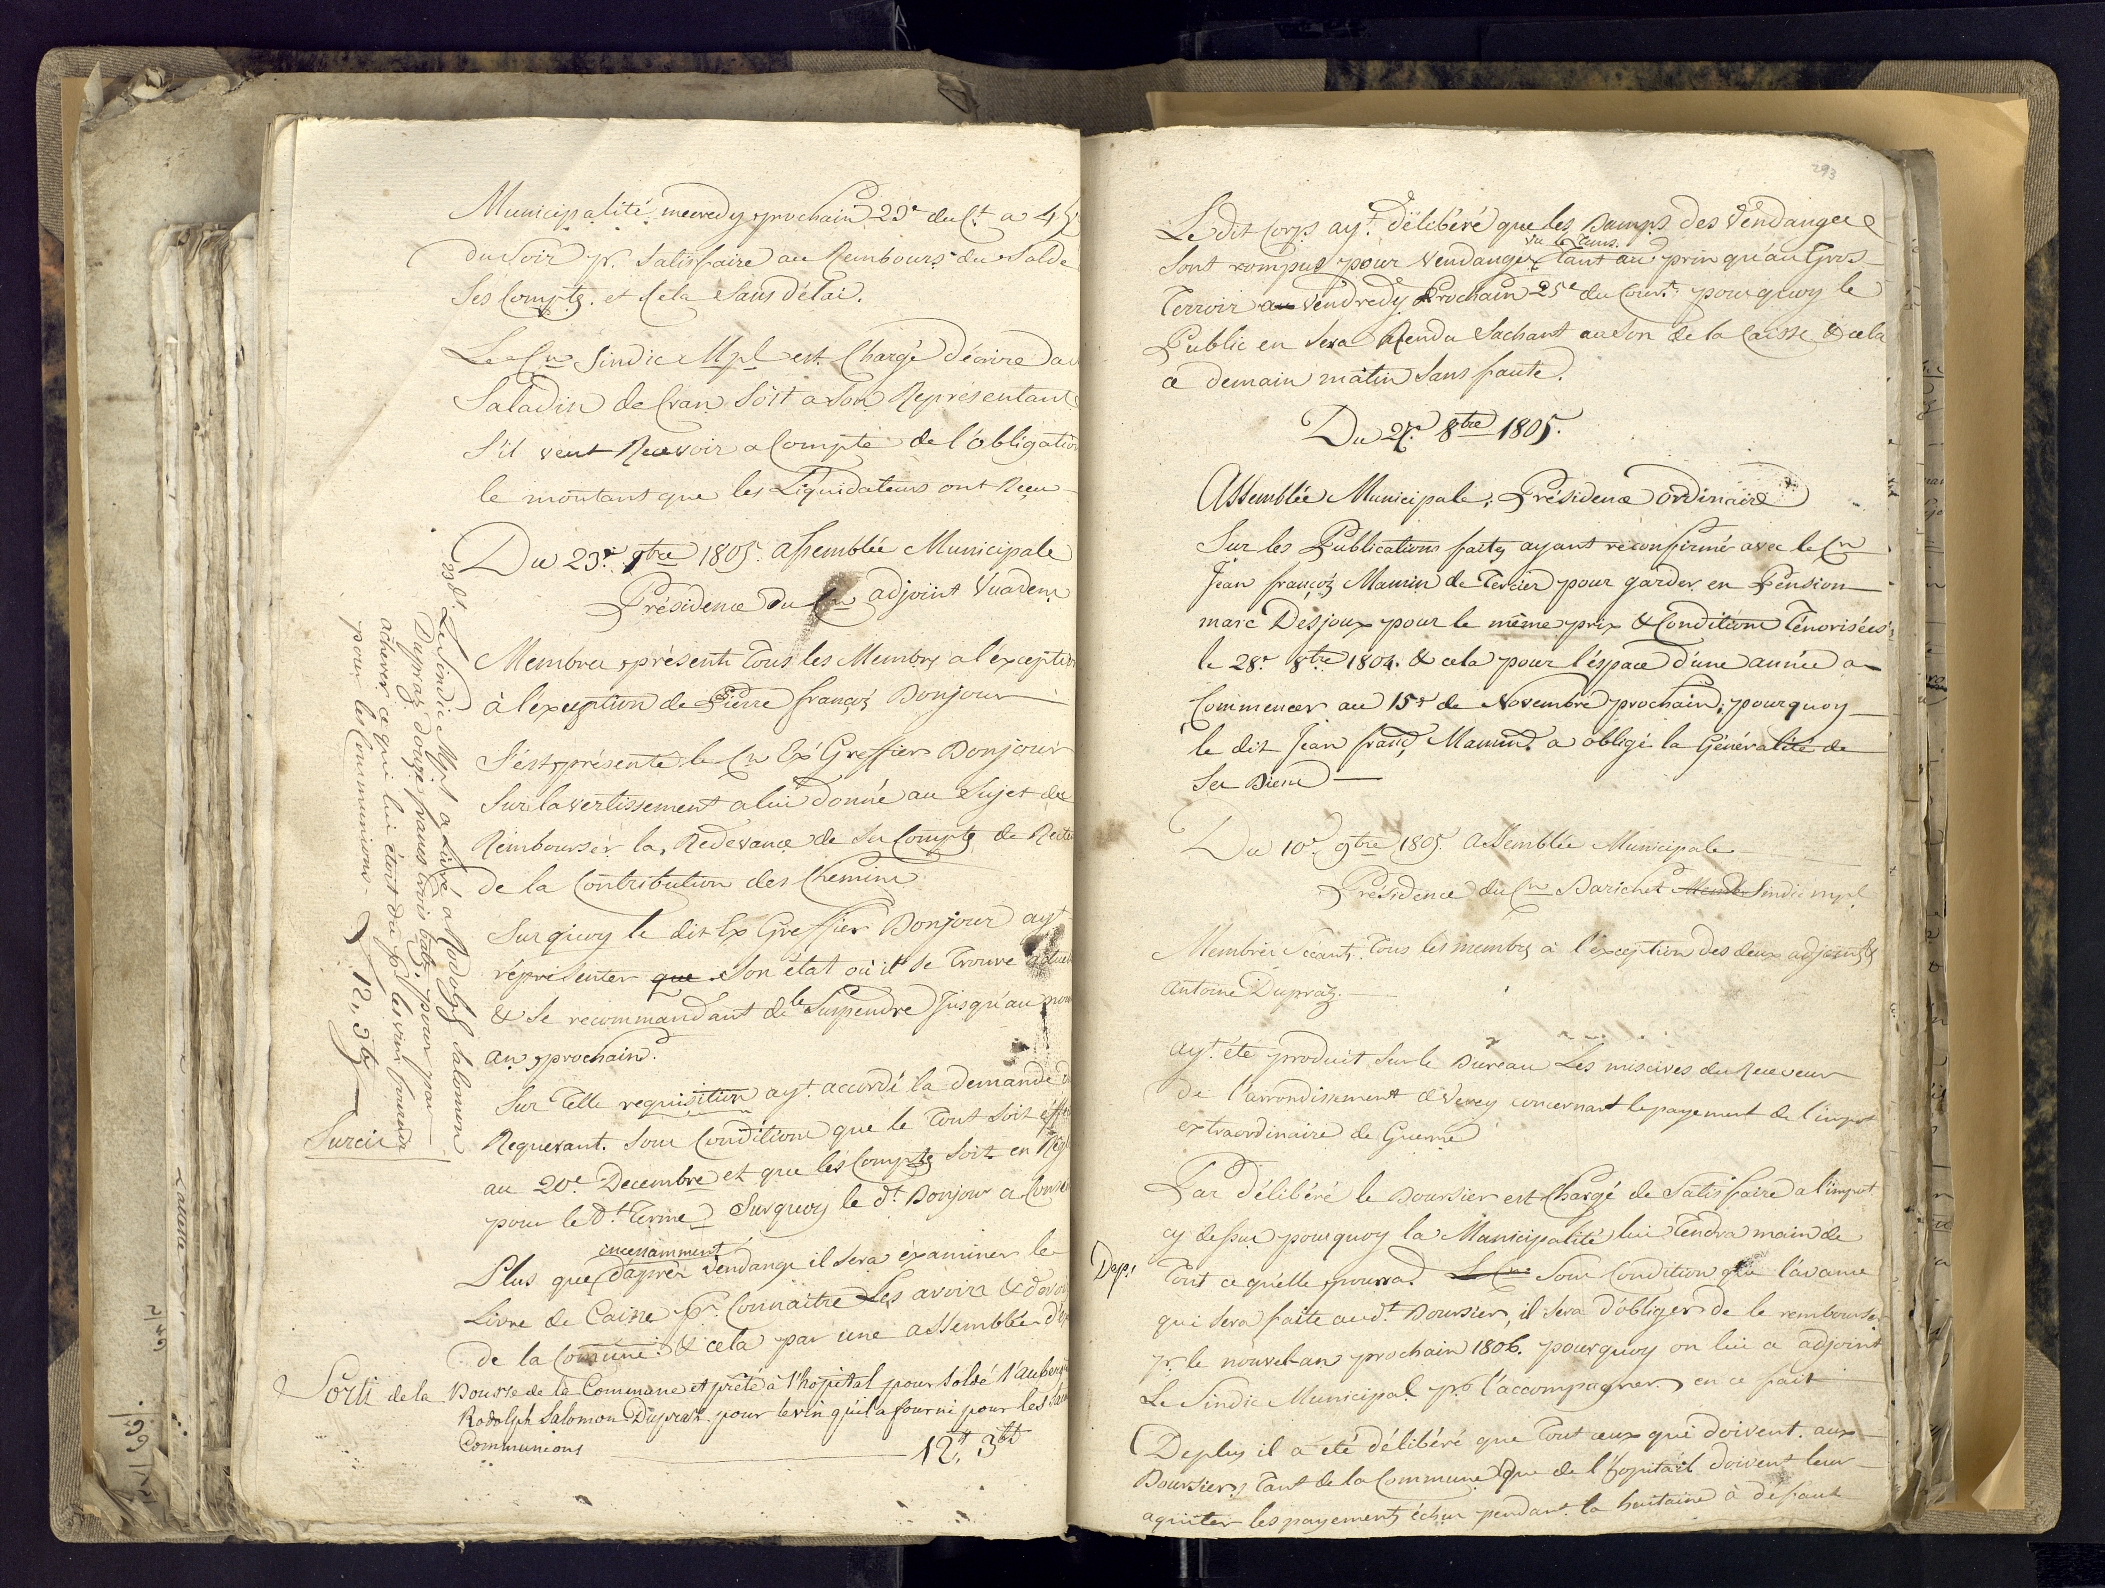 Municipalité mecredy prochain 23e du Ct. a 4
du Soir pr. Satisfaire au Rembours du Solde
Ses Compts. et Cela Sans délai.
Le Cn Sindic Mpl est Chargé d'écrire
Saladin de Cran Soit a Son Représentant
S'il veut Recevoir a Compte de l'obligation
le montant que les Liquidateurs ont Reçu
Du 23e 1805. assemblée Municipale
Présidence du Cn adjoint Vuadens
Membres présents tous les Membres a l'exception
à l'exception de Pierre françois Bonjour
S'est présenté le Cn Ex Greffier Bonjour
Sur lavertissement a lui donné au Sujet de
Rembourser la Redevance de Ses Compts de
de la Contribution des Chemins
Sur quoy le dit Ex Greffier Bonjour ayt
réprésenter que Son état où il se trouve
& se recommandant de le Suspendre Jusqu'au
an prochain.
Sur telle requisition ayt. accordé la demande
Requerant. Sous Conditions que le tout soit
au 20e. Decembre et que les Compts soit en
pour le dt. terme Surquoy le dt. Bonjour a
Plus que d'aprés vendange il sera éxaminer le
incessamment
Livre de Caisse pr. Connaitre les avoirs &
de la Comune. & cela par une assemblée
Sorti de la Bourse de la Commune et prêté à l'hopital pour Soldé
Rodolph Salomon Dupraz pour le vin qu'il a fourni pour les
Communions 12. 3
23 dt. Le Sindic Mpl a Livré a Rodolph Salomon
Dupraz douze francs trois batz pour par
achever ce qui lui étoit dû pr. les vins fournir
pour les Communions. 12,, 3 bz
Surcis
293
Le dit Corps ayt. délibéré que les Bamps des Vendanges
Sont rompus pour Vendanger tant au prin qu'au Gros
vu le tems.
Terroir au Vendredy Prochain 25e du Court. pourquoy le
Public en Sera Rendu Sachant au Son de la Caisse & cela
ce demain matin Sans faute.
Du 8bre 1805.
Assemblée Municipale, Présidence ordinaire
Sur les Publications faits ayant réconfirmé avec le Cn
Jean françois Mamin de Tercier pour garder en Pension
marc Desjoux pour le même prix & Conditions Ténorisées
le 28e 8bre 1804. & cela pour l'éspace d'une année a
Commencer au 15e de Novembre prochain, pourquoy
le dit Jean franç Mamin a obligé la Généralité de
Ses Biens
Du 10e. 9bre 1805. assemblée Municipale
Présidence du Cn Barichet Sindic mpl
Membres Séants. tous les membres à l'exception des deux adjoints &
antoine Dupraz.
ayt. été produit Sur le Bureau Les missives du Receveur
de l'arrondissement de Vevey concernant le payement de l'impot
extraordinaire de Guerre
Par délibéré le Boursier est Chargé de Satisfaire a l'impot
cy dessus pourquoy la Municipalité lui tendra main de
tout ce qu'elle pourra. Le Cn Sous Condition que l'avance
qui Sera faite au dt. Boursier, il Sera d'obliger de le rembourser
pr. le nouvel an prochain 1806. pourquoy on lui a adjoint
Le Sindic Municipal pr. l'accompagner en ce fait
Deplus il a été délibéré que tout ceux qui doivent aux
Boursiers tant de la Commune que de l'hopitail doivent leur
aquiter les payements échus pendant la huitaine à défaut